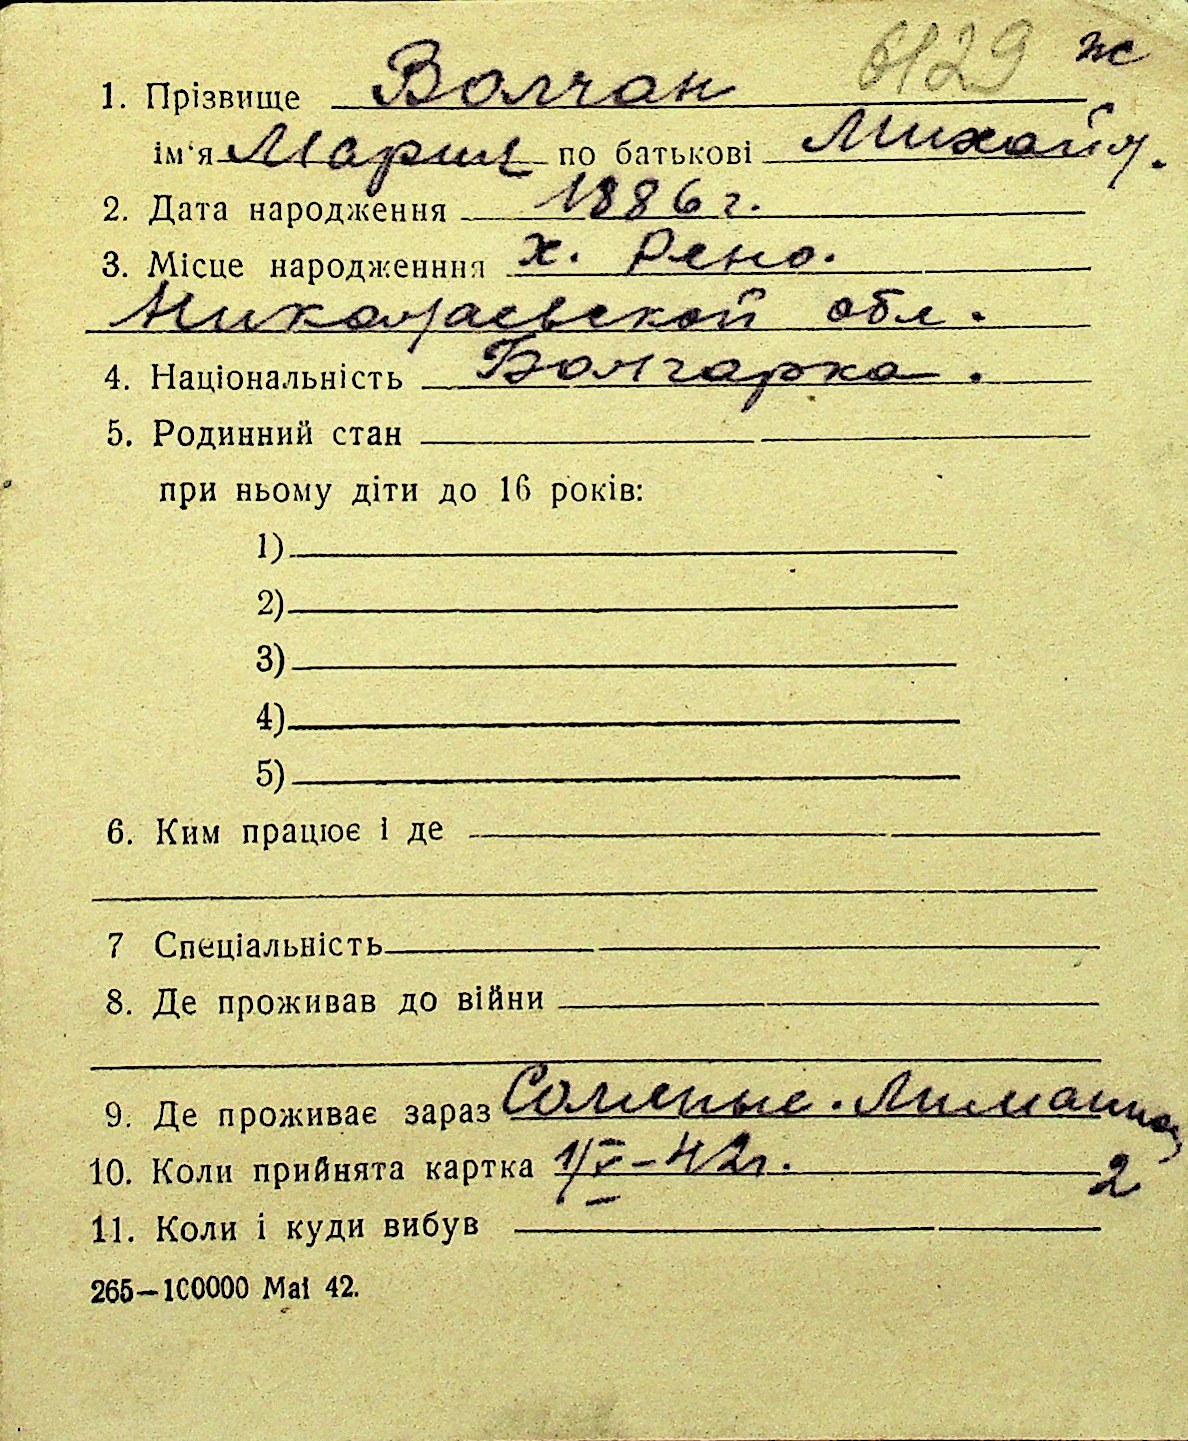 6129 ж
1. Прізвище Волчан
ім'я Мария по батькові Михайл.
2. Дата народження 1886 г.
3. Місце народженння х. Рено.
Николаевской обл.
4. Національність Болгарка.
5. Родинний стан
при ньому діти до 16 років:
1)
2)
3)
4)
5)
6. Ким працює і де
7 Спеціальність
8. Де проживав до війни
9. Де проживає зараз Соленые.
10. Коли прийнята картка 1/V-42г. 2
11. Коли і куди вибув
265—100000 Маі 42.